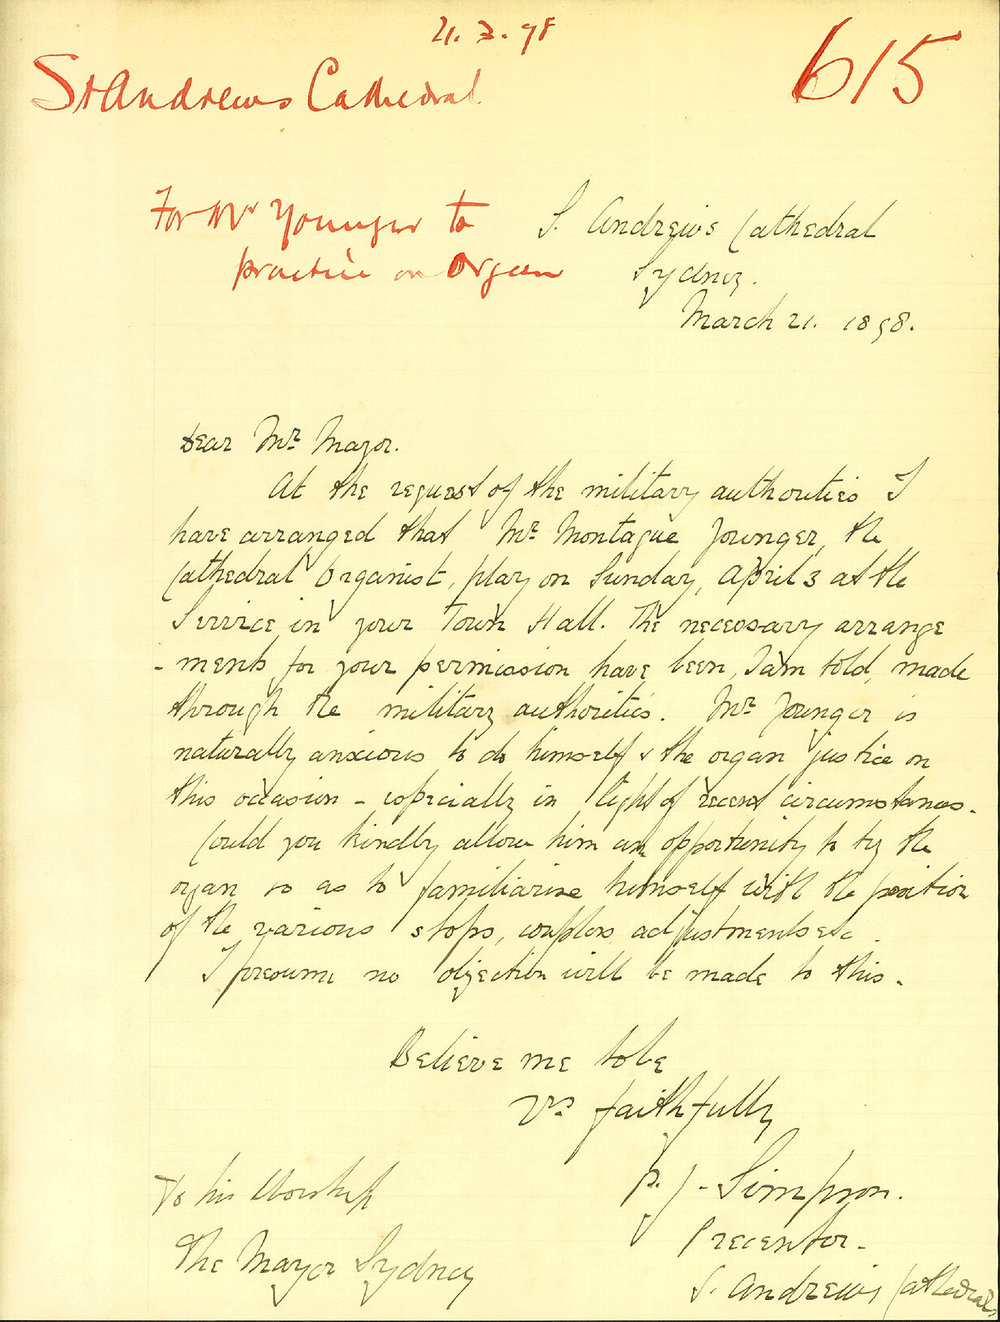 21.3.98
615
St Andrews Cathedral
For Mr Younger to
practice on Organ
S. Andrew's Cathedral
Sydney.
March 21. 1898.
Dear Mr. Mayor.
At the request of the military authorities I
have arranged that Mr. Montague Younger, the
Cathedral Organist, play on Sunday, April 3 at the
Service in your Town Hall. The necessary arrange
-ments for your permission have been, I am told, made
through the military authorities. Mr. Younger is
naturally anxious to do himself & the organ justice on
this occasion - especially in light of recent circumstances.
Could you kindly allow him an opportunity to try the
organ so as to familiarise himself with the position
of the various stops, couplers, adjustments etc.
I presume no objection will be made to this.
Believe me to be
Yrs faithfully
P. J. Simpson.
Precentor.
S. Andrew's Cathedral.
To his Worship
The Mayor Sydney